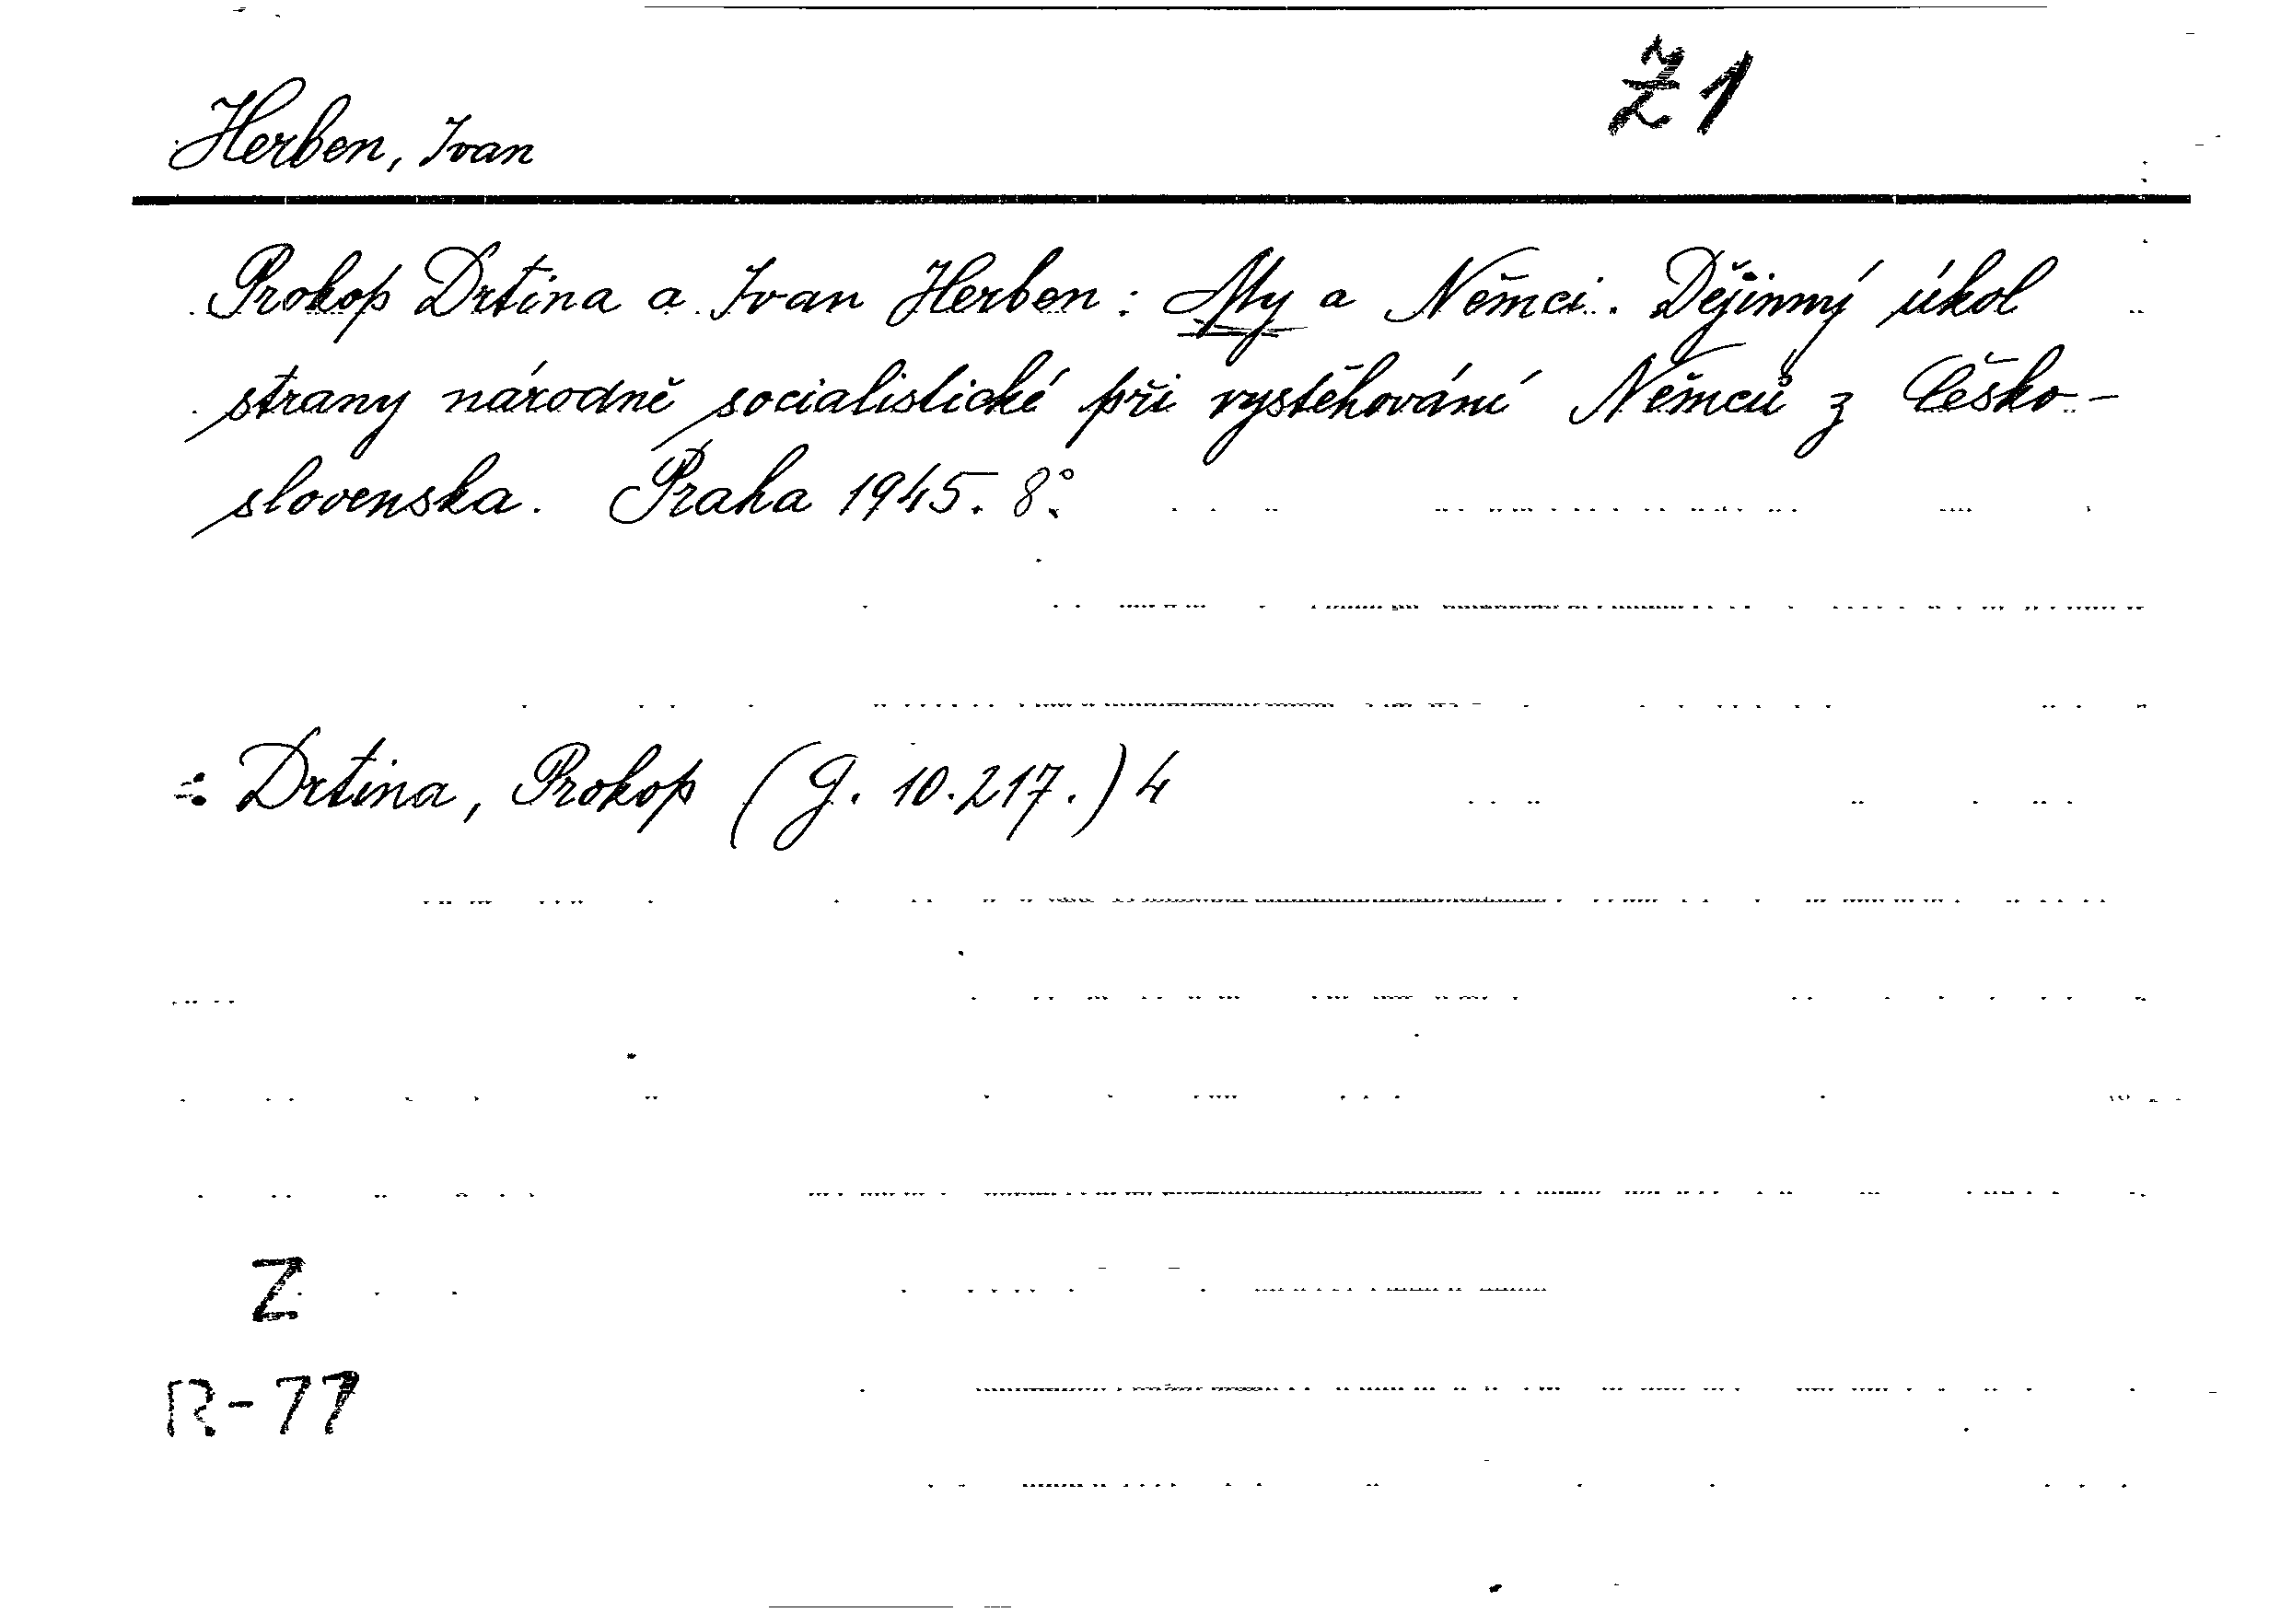 Ž 1
Herben, Ivan
Prokop Drtina a Ivan Herben : My a Němci. Dějinný úkol
strany národně socialistické při vystěhování Němců z Česko-
slovenska. Praha 1945. 8°.
÷ Drtina, Prokop (G. 10.217.) 4
Z
R-77